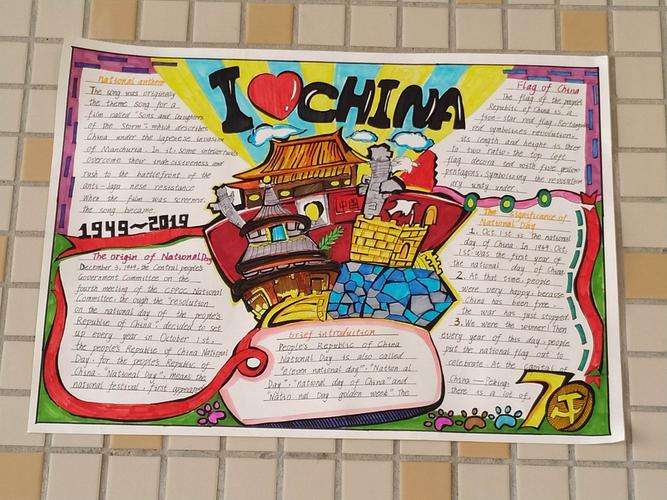 I ❤ CHINA
National anthem
The song was originally
the theme song for a
film called "Sons and daughters
of the Storm" which describes
China under the Japanese invasion
of Manchuria. In it, some intellectuals
overcome their indecisiveness and
rush to the battlefront of the
anti-Japanese resistance
When the film was screened,
the song became
1949~2019
The origin of National Day
December 3, 1949, the Central people's
Government Committee on the
fourth meeting of the CPPCC National
Committee through the "resolution
on the national day of the people's
Republic of China", decided to set
up every year in October 1st,
the people's Republic of China National
Day, for the people's Republic of
China. "National Day" means the
national festival, first appeared
中国
brief introduction
People's Republic of China
National Day is also called
"eleven national day" "National
Day", "national day of China" and
"National Day golden week". The
Flag of China
The flag of the people
Republic of China is a
five-star red flag. Rectangular
red symbolizes revolution,
its length and height is three
to two, the top left
flag decorated with five yellow
pentagons, symbolising the revolution
ary unity under
The significance of
National Day
1. Oct. 1st is the national
day of China. In 1949. Oct.
1st was the first year of
the national day of China.
2. At that time, people
were very happy, because
China has been free
the war has just stopped
3. We were the winner! Then
every year of this day people
put the national flag out to
celebrate. At the capital of
China — Peking.
there is a lot of
70